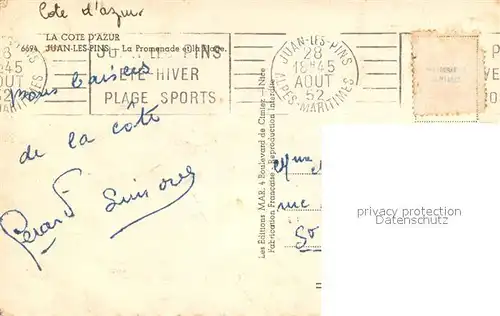 Cote d'azur
LA COTE D'AZUR
6694 JUAN-LES-PINS — La Promenade et la Plage.
JUAN-LES-PINS
ÉTÉ-HIVER
PLAGE SPORTS
JUAN-LES-PINS
28
18H45
AOUT
52
ALPES-MARITIMES
28
45
OUT
52
bons baisers
de la côte
Gérard
Les Éditions MAR. 4 Boulevard de Cimiez - Nice
Fabrication Française - Reproduction Interdite
Mme
rue
privacy protection
Datenschutz